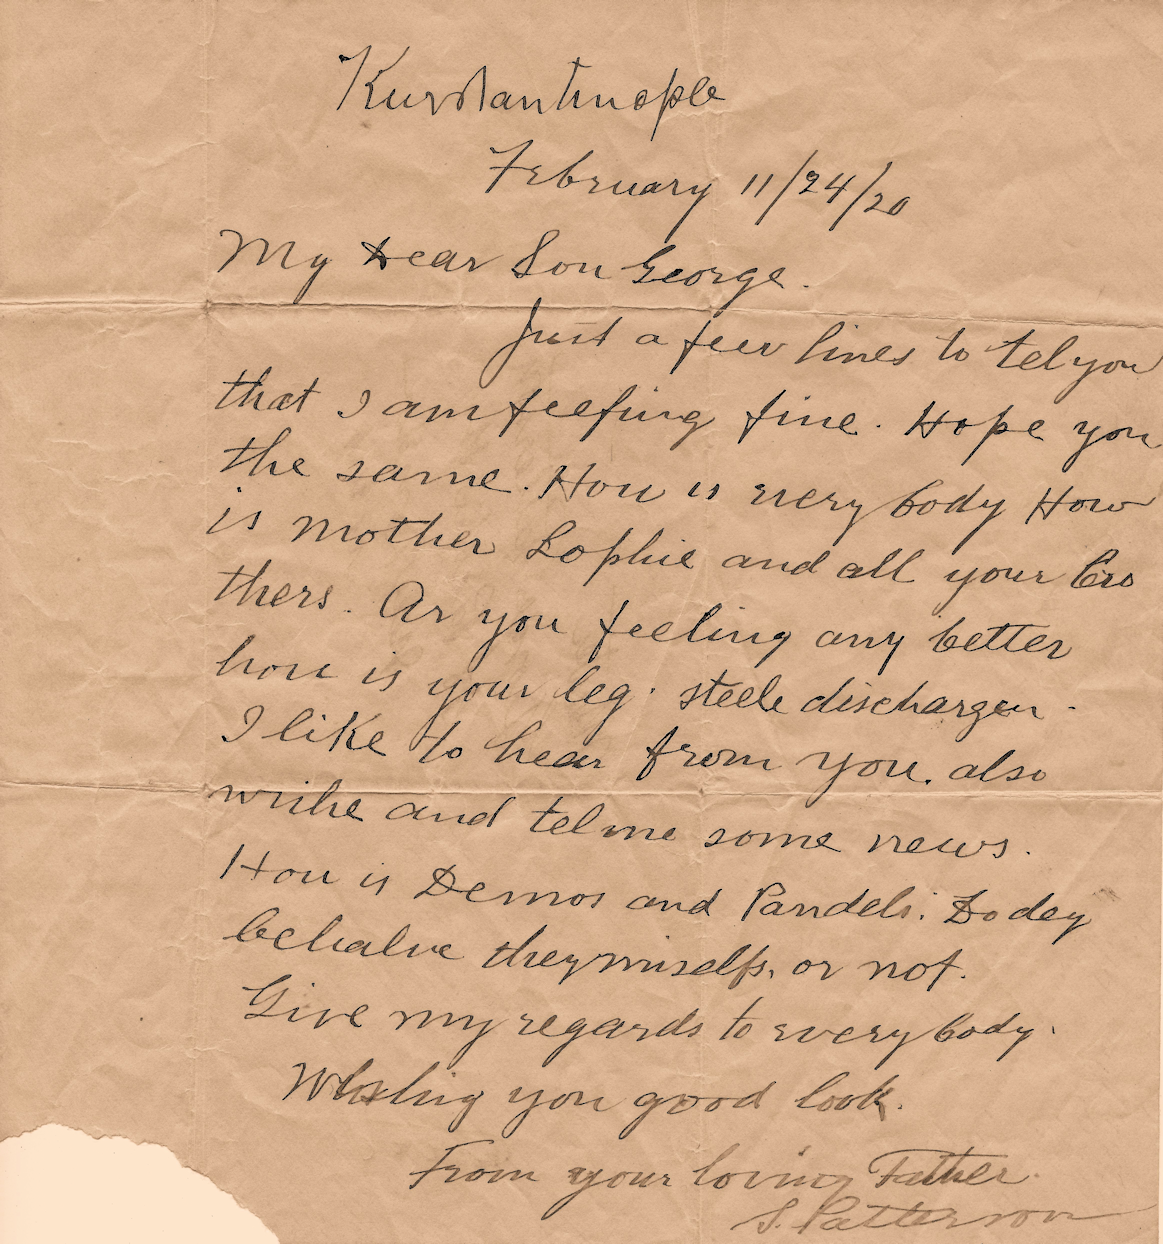 Kunstantinople
February 11/24/20
My Dear Son George.
Just a few lines to tel you
that I am feeling fine. Hope you
the same. How is every body How
is mother Sophie and all your bro
thers. Ar you feeling any better
how is your leg. steele dischargen.
I like to hear from you. also
write and tel me some news.
How is Demos and Pandeli. Do dey
behalve they miselfs. or not.
Give my regards to every body.
Wishing you good look.
From your loving Father.
S. Patterson